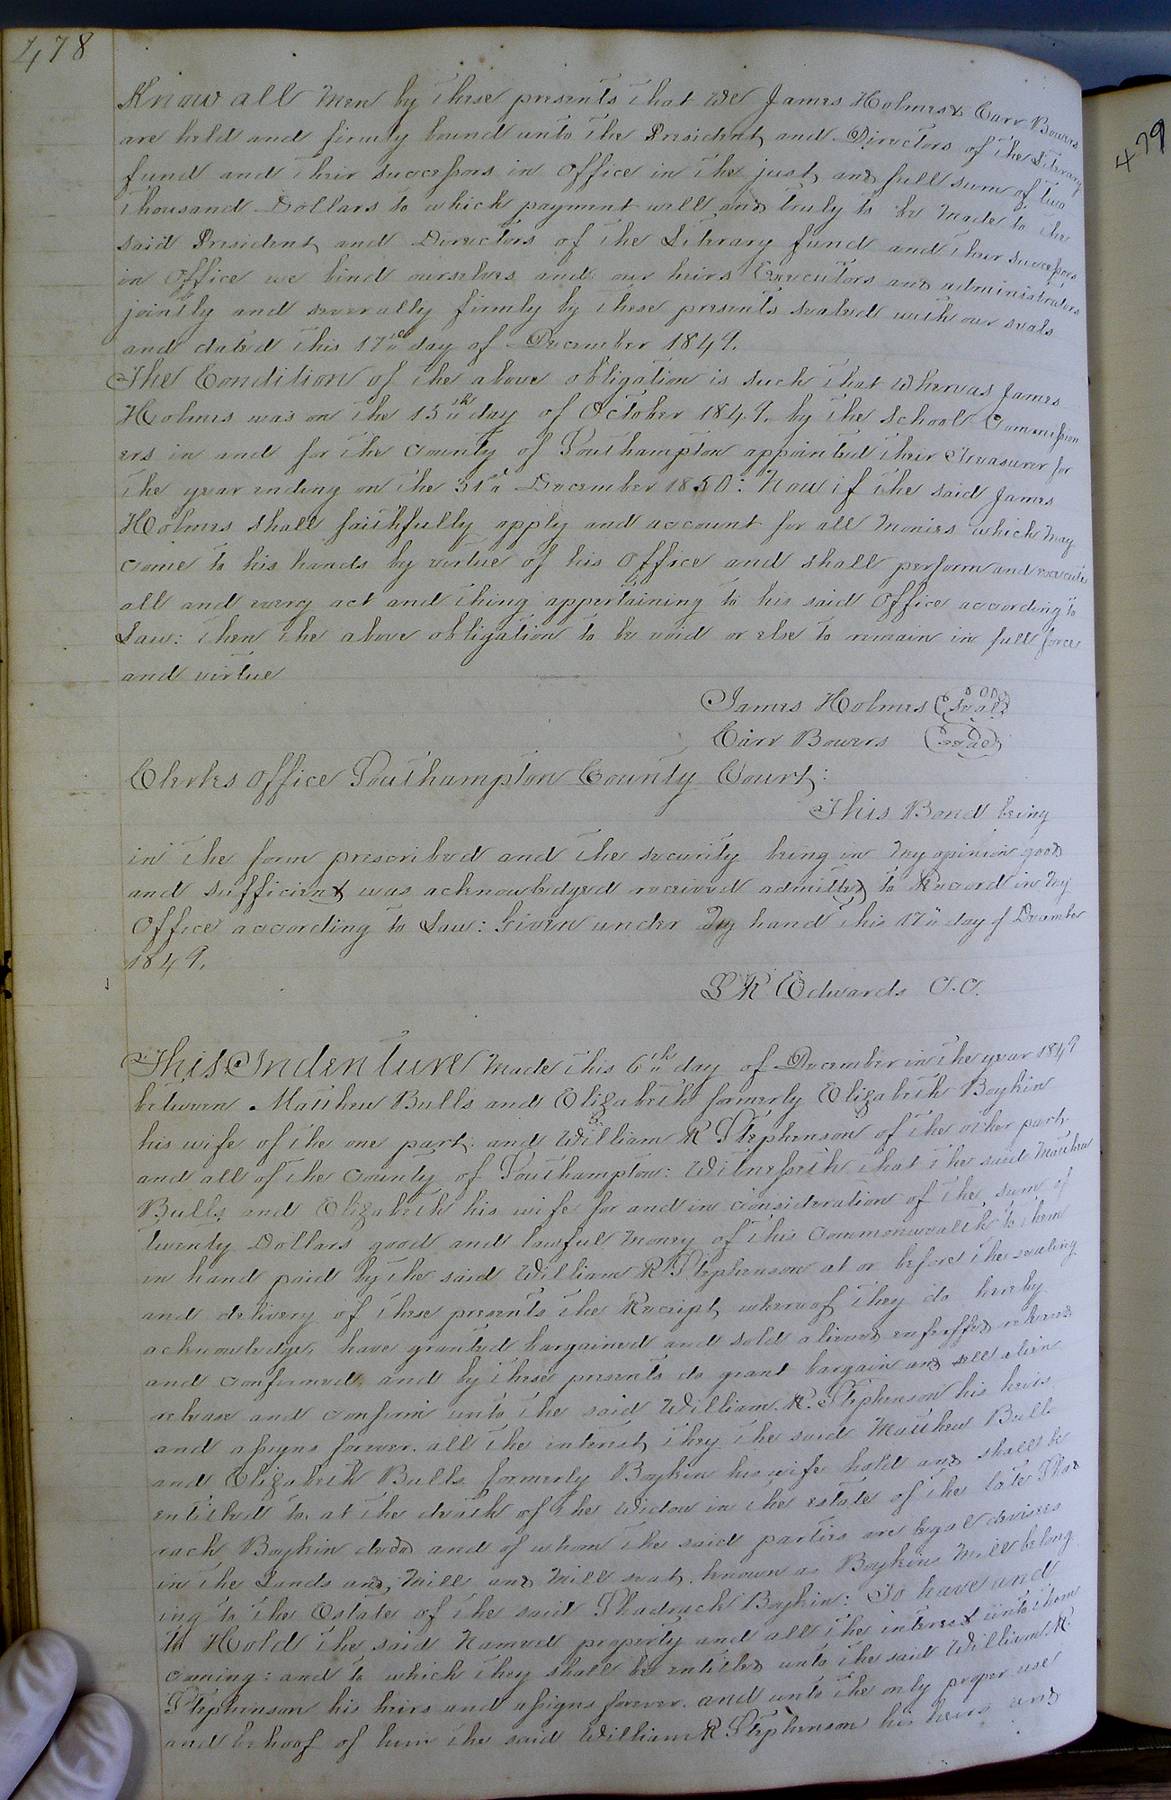 478
Know all Men by these presents that We James Holmes & Carr Bowers
are held and firmly bound unto the President and Directors of the Literary
fund and their successors in Office in the just and full sum of two
thousand Dollars to which payment well and truly to be made to the
said President and Directors of the Literary fund and their successors
in Office we bind ourselves and our heirs Executors and administrators
jointly and severally firmly by these presents sealed with our seals
and dated this 17th day of December 1849.
The Condition of the above obligation is such that Whereas James
Holmes was on the 15th day of October 1849. by the School Commission
ers in and for the County of Southampton appointed their Treasurer for
the year ending on the 31st December 1850: Now if the said James
Holmes shall faithfully apply and account for all Monies which may
come to his hands by virtue of his Office and shall perform and execute
all and every act and thing appertaining to his said Office according to
Law: then the above obligation to be void or else to remain in full force
and virtue
James Holmes (Seal)
Carr Bowers (Seal)
Clerks Office Southampton County Court:
This Bond being
in the form prescribed and the security being in My opinion good
and sufficient was acknowledged received admitted to Record in My
Office according to Law: Given under My hand this 17" day of December
1849.
L R Edwards C.C.
This Indenture Made this 6th day of December in the year 1849
between Matthew Bulls and Elizabeth formerly Elizabeth Boykin
his wife of the one part: and William R Stephenson of the other part
and all of the County of Southampton: Witnesseth that the said Matthew
Bulls and Elizabeth his wife for and in consideration of the sum of
twenty Dollars good and lawful Money of this Commonwealth to them
in hand paid by the said William R Stephenson at or before the sealing
and delivery of these presents the Receipt whereof they do hereby
acknowledge, have granted bargained and sold aliened enfeoffed released
and confirmed and by these presents do grant bargain and sell alien
release and confirm unto the said William R. Stephenson his heirs
and assigns forever. all the interest they the said Matthew Bulls
and Elizabeth Bulls formerly Boykin his wife hold and shall be
entitled to at the death of the Widow in the estate of the late Shad
rach Boykin decd and of whom the said parties are legal devisees
in the Lands and Mill and Mill seat known as Boykins Mill belong
ing to the Estate of the said Shadrach Boykin: To have and
to Hold the said Named property and all the interest unto them
coming: and to which they shall be entitled unto the said William R.
Stephenson his heirs and assigns forever. and unto the only proper use
and behoof of him the said William R Stephenson his heirs and
479